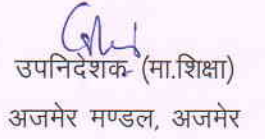 उपनिदेशक (मा.शिक्षा)
अजमेर मण्डल, अजमेर